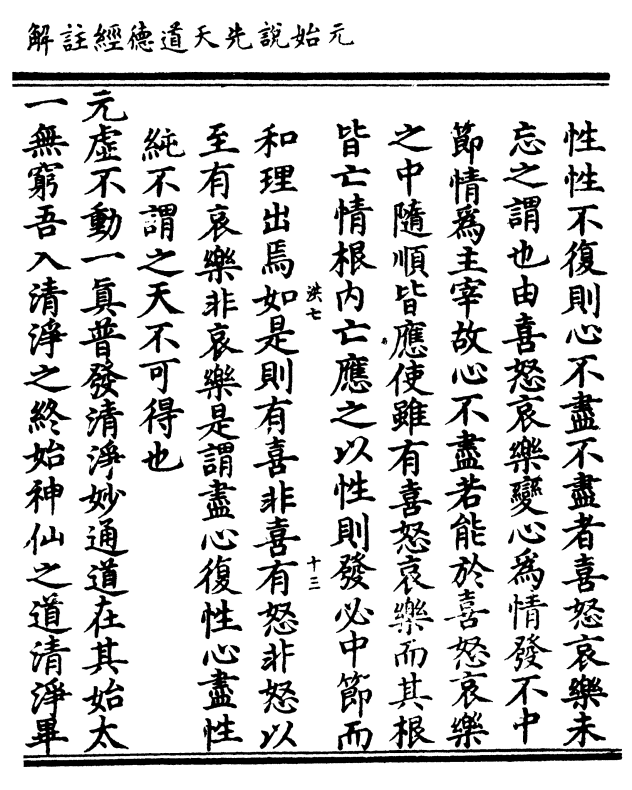 元始說先天道德經註解
性性不復則心不盡不盡者喜怒哀樂未
忘之謂也由喜怒哀樂變心爲情發不中
節情爲主宰故心不盡若能於喜怒哀樂
之中隨順皆應使雖有喜怒哀樂而其根
皆亡情根内亡應之以性則發必中節而
洪七
十三
和理出焉如是則有喜非喜有怒非怒以
至有哀樂非哀樂是謂盡心復性心盡性
純不謂之天不可得也
元虛不動一眞普發清淨妙通道在其始太
一無窮吾入清淨之終始神仙之道清淨畢